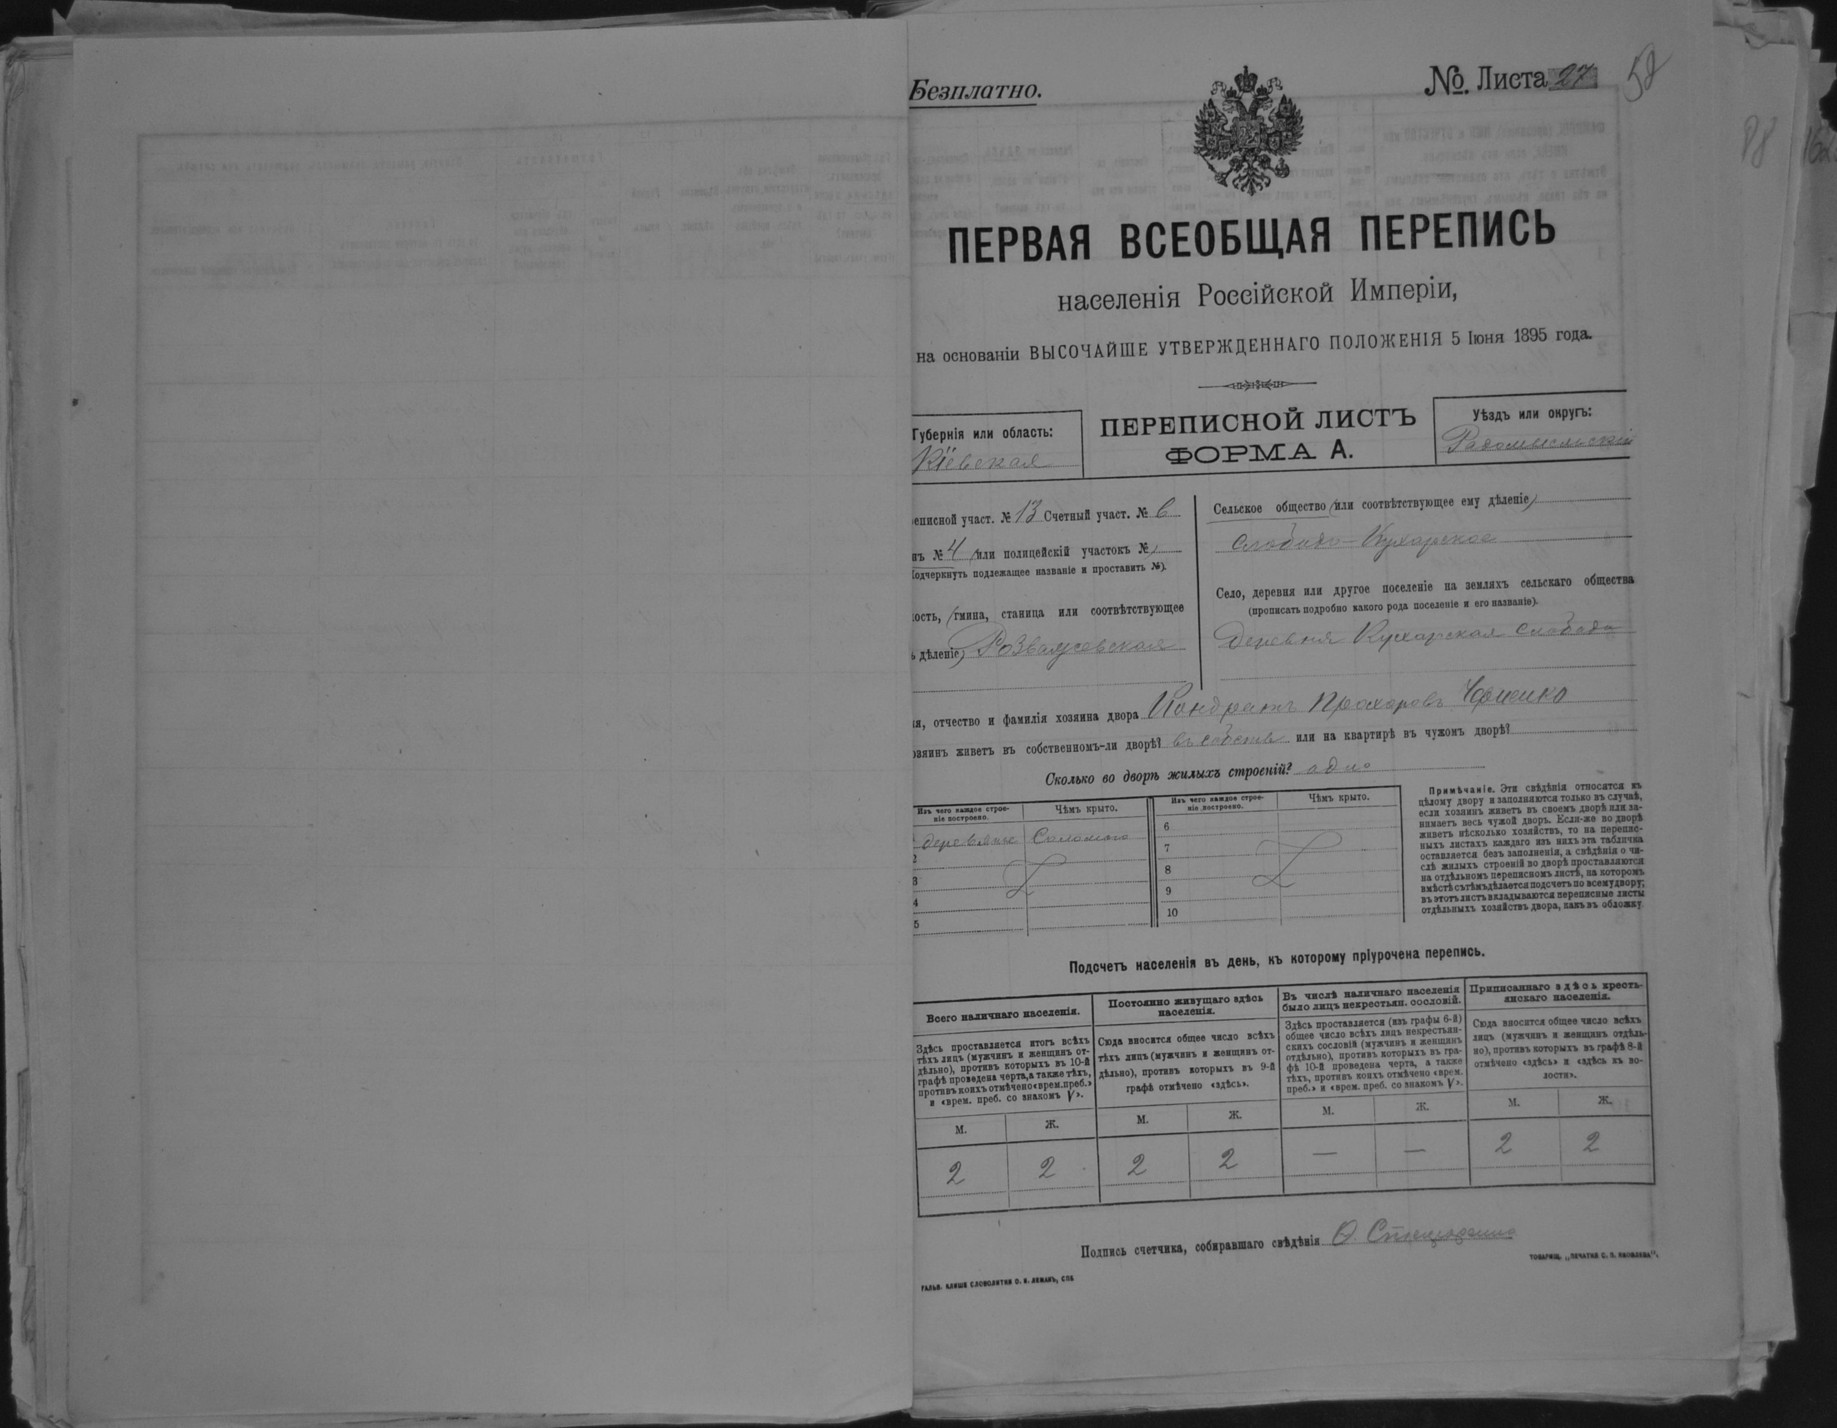 Безплатно.
№. Листа 27
ПЕРВАЯ ВСЕОБЩАЯ ПЕРЕПИСЬ
населенія Россійской Имперіи,
на основаніи ВЫСОЧАЙШЕ УТВЕРЖДЕННАГО ПОЛОЖЕНІЯ 5 Іюня 1895 года.
Губернія или область:
Кіевская
ПЕРЕПИСНОЙ ЛИСТЪ
ФОРМА А.
Уѣздъ или округъ:
Радомысльскій
реписной участ. № 13 Счетный участ. № 6
нъ № 4 (или полицейскій участокъ №)
Подчеркнуть подлежащее названіе и проставить №).
лость, (гмина, станица или соотвѣтствующее
ъ дѣленіе) Розважевская
Сельское общество (или соотвѣтствующее ему дѣленіе)
Слободо-Кухарское
Село, деревня или другое поселеніе на земляхъ сельскаго общества
(прописать подробно какого рода поселеніе и его названіе).
деревня Кухарская слобода
ія, отчество и фамилія хозяина двора Кондратъ Прохоровъ
озяинъ живетъ въ собственномъ-ли дворѣ? въ собств или на квартирѣ въ чужомъ дворѣ?
Сколько во дворѣ жилыхъ строеній? одно
Изъ чего каждое строе-
ніе построено.
Чѣмъ крыто.
деревяное Соломою
2
3
4
5
Изъ чего каждое строе-
ніе построено.
Чѣмъ крыто.
6
7
8
9
10
Примѣчаніе. Эти свѣдѣнія относятся къ
цѣлому двору и заполняются только въ случаѣ,
если хозяинъ живетъ въ своемъ дворѣ или за-
нимаетъ весь чужой дворъ. Если-же во дворѣ
живетъ нѣсколько хозяйствъ, то на перепис-
ныхъ листахъ каждаго изъ нихъ эта табличка
оставляется безъ заполненія, а свѣдѣнія о чи-
слѣ жилыхъ строеній во дворѣ проставляются
на отдѣльномъ переписномъ листѣ, на которомъ
вмѣстѣ съ тѣмъ дѣлается подсчетъ по всему двору;
въ этотъ листъ вкладываются переписные листы
отдѣльныхъ хозяйствъ двора, какъ въ обложку.
Подсчетъ населенія въ день, къ которому пріурочена перепись.
Всего наличнаго населенія.
Здѣсь проставляется итогъ всѣхъ
тѣхъ лицъ (мужчинъ и женщинъ от-
дѣльно), противъ которыхъ въ 10-й
графѣ проведена черта, а также тѣхъ,
противъ коихъ отмѣчено «врем. преб.»
и «врем. преб. со знакомъ V».
М. Ж.
2 2
Постоянно живущаго здѣсь
населенія.
Сюда вносится общее число всѣхъ
тѣхъ лицъ (мужчинъ и женщинъ от-
дѣльно), противъ которыхъ въ 9-й
графѣ отмѣчено «здѣсь».
М. Ж.
2 2
Въ числѣ наличнаго населенія
было лицъ некрестьян. сословій.
Здѣсь проставляется (изъ графы 6-й)
общее число всѣхъ лицъ некрестьян-
скихъ сословій (мужчинъ и женщинъ
отдѣльно), противъ которыхъ въ гра-
фѣ 10-й проведена черта, а также
тѣхъ, противъ коихъ отмѣчено «врем.
преб.» и «врем. преб. со знакомъ V».
М. Ж.
— —
Приписаннаго здѣсь кресть-
янскаго населенія.
Сюда вносится общее число всѣхъ
лицъ (мужчинъ и женщинъ отдѣль-
но), противъ которыхъ въ графѣ 8-й
отмѣчено «здѣсь» и «здѣсь къ во-
лости».
М. Ж.
2 2
Подпись счетчика, собиравшаго свѣдѣнія
ГАЛЬВ. КЛИШЕ СЛОВОЛИТНИ О. И. ЛЕМАНЪ, СПБ
ТОВАРИЩ. „ПЕЧАТНЯ С. П. ЯКОВЛЕВА".